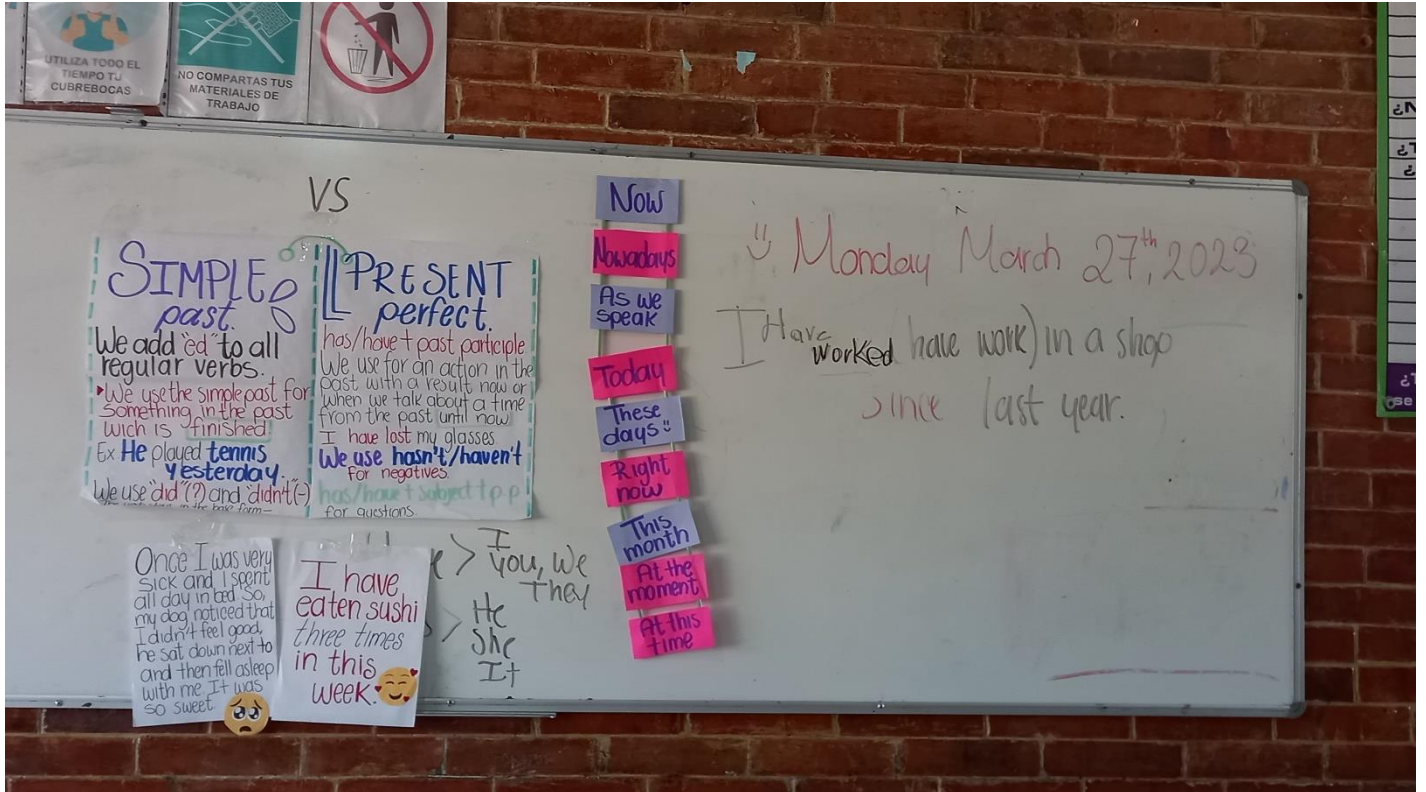 UTILIZA TODO EL
TIEMPO TU
CUBREBOCAS
NO COMPARTAS TUS
MATERIALES DE
TRABAJO
VS
SIMPLE
past.
We add "ed" to all
regular verbs.
We use the simple past for
something in the past
wich is finished
Ex He played tennis
yesterday.
We use "did" (?) and "didn't" (-)
PRESENT
perfect.
has/have + past participle
We use for an action in the
past with a result now or
when we talk about a time
from the past until now
I have lost my glasses
We use hasn't/haven't
for negatives.
has/have + subject + p.p
for questions.
Once I was very
sick and I spent
all day in bed So,
my dog noticed that
I didn't feel good,
he sat down next to
and then fell asleep
with me. It was
so sweet
I have
eaten sushi
three times
in this
week.
> I
You, We
They
> He
She
It
Now
Nowadays
As we
speak
Today
These
days
Right
now
This
month
At the
moment
At this
time
Monday March 27th, 2023
I Have worked (have work) in a shop
since last year.